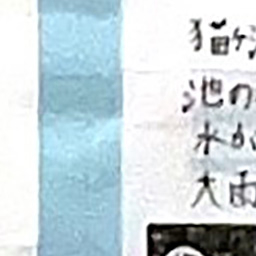 猫ヶ
池の
水が
大雨